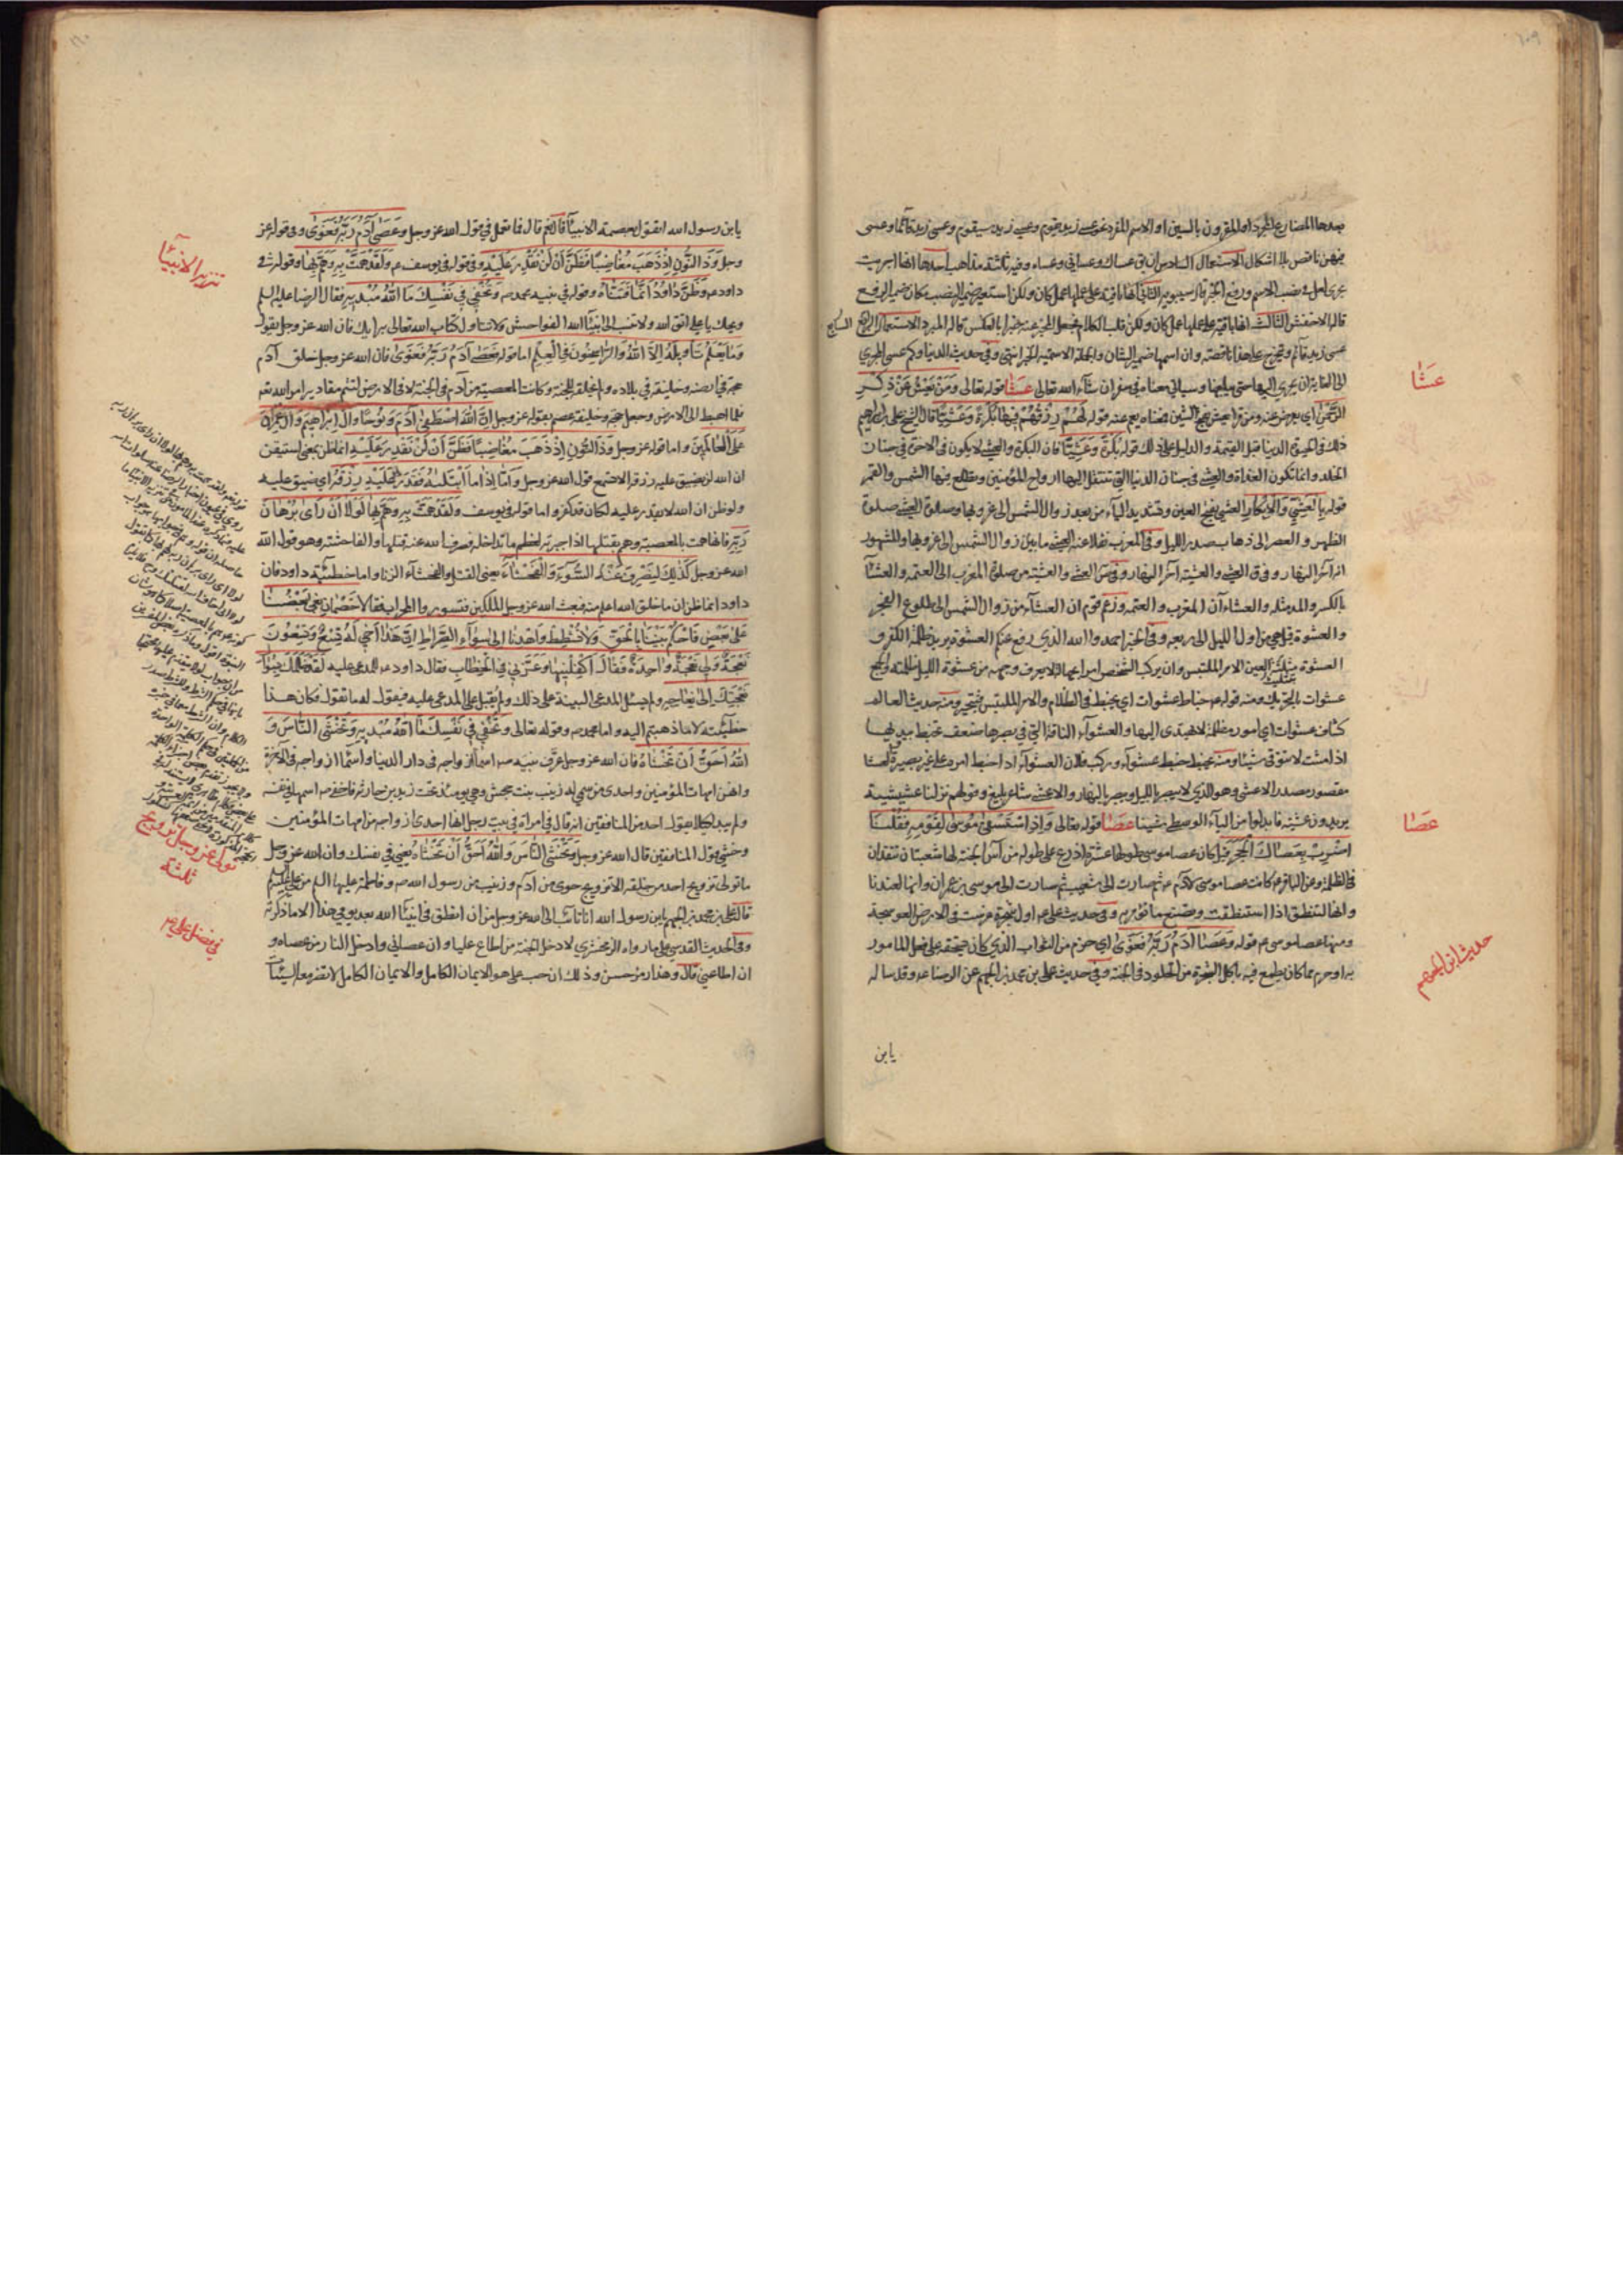 بعدها المضارع المجرد او المقرون بالسين او الاسم المفرد نحو عسى زيد يقوم وعسى زيد سيقوم وعسى زيد قائما وعسى
فيهن ناقص بلا اشكال الاستعمال السادس ان يق عساك وعساني وعساه وفيه ثلثة مذاهب احدها انها اجريت
مجرى لعل في نصب الاسم ورفع الخبر قاله سيبويه الثاني انها باقية على عملها عمل كان ولكن استعير ضمير النصب مكان ضمير الرفع
قاله الاخفش الثالث انها باقية على عملها عمل كان ولكن قلب الكلام فجعل المخبر عنه خبرا بالعكس قاله المبرد الاستعمال السابع
عسى زيد قائم ويتخرج على هذا ناقصة وان اسمها ضمير الشان والجملة الاسمية الخبر انتهى وفي حديث الدنيا وكم عسى المجرى
الى الغاية ان يجري اليها حتى يبلغها وسياتي معناه في سفر ان شاء الله تعالى عشا قوله تعالى وَمَنْ يَعْشُ عَنْ ذِكْرِ
الرَّحْمٰنِ اي يعرض عنه ومن قرا يعش بفتح الشين فمعناه يعم عنه قوله لَهُمْ رِزْقُهُمْ فِيهَا بُكْرَةً وَعَشِيًّا قال الشيخ علي بن ابراهيم
ذلك في الحيوة الدنيا قبل القيمة والدليل على ذلك قوله بُكْرَةً وَعَشِيًّا فان البكرة والعشي لا يكون في الاخرة في جنات
الخلد وانما تكون الغداة والعشي في جنان الدنيا التي تنتقل اليها ارواح المؤمنين وتطلع فيها الشمس والقمر
قوله بِالعَشِيِّ وَالْاِبْكَارِ العشي بفتح العين وتشديد الياء من بعد زوال الشمس الى غروبها وصلوة العشي صلوة
الظهر والعصر الى ذهاب صدر الليل وفي المغرب نقلا عنه العشي ما بين زوال الشمس الى غروبها والمشهور
انه آخر النهار وفي ق العشي والعشية آخر النهار وفي ص العشي والعشية من صلوة المغرب الى العتمة والعشآء
بالكسر والمد مثله والعشاءان المغرب والعتمة وزعم قوم ان العشآء من زوال الشمس الى طلوع الفجر
والعشوة قيل هي من اول الليل الى ربعه وفي الخبر احمدوا الله الذي رفع عنكم العشوة يريد ظلمة الكفر وق
العشوة مثلثة العين الامر الملتبس وان يركب الشخص امرا بجهالة لا يعرف وجهه من عشوة الليل ظلمته والجمع
عشوات بالتحريك ومنه قوله خباط عشوات اي يخبط في الظلام والامر الملتبس فيتحير ومنه حديث العالم
كشاف عشوات اي امور مظلمة لا يهتدى اليها والعشوآء الناقة التي في بصرها ضعف تخبط بيديها
اذا مشت لا تتوقى شيئا ومنه يخبط خبط عشوآء وركب فلان العشوآء اذا خبط امره على غير بصيرة والعشا
مقصور مصدر الاعشى وهو الذي لا يبصر بالليل ويبصر بالنهار والاعشى شاعر بليغ وقولهم نزلنا عشيشية
يريدون عشية فابدلوا من الياء الوسطى شينا عصا قوله تعالى وَاِذِ اسْتَسْقٰى مُوسٰى لِقَوْمِهِ فَقُلْنَا
اضْرِبْ بِعَصَاكَ الْحَجَرَ قيل كان عصا موسى طولها عشرة اذرع على طوله من آس الجنة لها شعبتان تتقدان
في الظلمة وعن الباقر ع كانت عصا موسى لآدم ع ثم صارت الى شعيب ثم صارت الى موسى بن عمران وانها لعندنا
وانها لتنطق اذا استنطقت وتصنع ما تؤمر به وفي حديث علي ع اول شجرة غرست في الارض العوسجة
ومنها عصا موسى ع قوله وَعَصٰى اٰدَمُ رَبَّهُ فَغَوٰى اي حرم من الثواب الذي كان يستحقه على فعل المامور
به او حرم مما كان يطمع فيه باكل الشجرة من الخلود في الجنة وفي حديث علي بن محمد بن الجهم عن الرضا ع وقد ساله
يابن
عشا
عصا
حديث ابن الجهم
يابن رسول الله اتقول بعصمة الانبيآء قال نعم قال فما تعمل في قول الله عز وجل وَعَصٰى آدَمُ رَبَّهُ فَغَوٰى وفي قوله عز
وجل وَذَا النُّونِ اِذْ ذَهَبَ مُغَاضِبًا فَظَنَّ اَنْ لَنْ نَقْدِرَ عَلَيْهِ وفي قوله في يوسف ع وَلَقَدْ هَمَّتْ بِهِ وَهَمَّ بِهَا وقوله في
داود ع وَظَنَّ دَاوُدُ اَنَّمَا فَتَنَّاهُ وقوله في نبيه محمد ص وَتُخْفِي فِي نَفْسِكَ مَا اللهُ مُبْدِيهِ فقال الرضا عليه السلم
ويحك يا علي اتق الله ولا تنسب الى انبيآء الله الفواحش ولا تتاول كتاب الله تعالى برايك فان الله عز وجل يقول
وَمَا يَعْلَمُ تَأْوِيلَهُ اِلَّا اللهُ وَالرَّاسِخُونَ فِي الْعِلْمِ اما قوله فَعَصٰى آدَمُ رَبَّهُ فَغَوٰى فان الله عز وجل خلق آدم
حجة في ارضه وخليفة في بلاده ولم يخلقه للجنة وكانت المعصية من آدم في الجنة لا في الارض لتتم مقادير امر الله تع
فلما اهبط الى الارض وجعل حجة وخليفة عصم بقوله عز وجل اِنَّ اللهَ اصْطَفٰى اٰدَمَ وَنُوحًا وَاٰلَ اِبْرَاهِيمَ وَاٰلَ عِمْرَانَ
عَلَى الْعَالَمِينَ واما قوله عز وجل وَذَا النُّونِ اِذْ ذَهَبَ مُغَاضِبًا فَظَنَّ اَنْ لَنْ نَقْدِرَ عَلَيْهِ انما ظن بمعنى استيقن
ان الله لن يضيق عليه رزقه الا تسمع قول الله عز وجل وَاَمَّا اِذَا مَا ابْتَلٰيهُ فَقَدَرَ عَلَيْهِ رِزْقَهُ اي ضيق عليه
ولو ظن ان الله لا يقدر عليه لكان قد كفر واما قوله في يوسف وَلَقَدْ هَمَّتْ بِهِ وَهَمَّ بِهَا لَوْلَا اَنْ رَاٰى بُرْهَانَ
رَبِّهِ فانها همت بالمعصية وهم بقتلها اذا اجبرته لعظم ما تداخله فصرف الله عنه قتلها والفاحشة وهو قول الله
الله عز وجل كَذٰلِكَ لِنَصْرِفَ عَنْهُ السُّوٓءَ وَالْفَحْشَاءَ يعني القتل والفحشآء الزنا واما خطيئة داود فان
داود انما ظن ان ما خلق الله اعلم منه فبعث الله عز وجل الملكين فتسوروا المحراب فقالا خَصْمَانِ بَغٰى بَعْضُنَا
عَلٰى بَعْضٍ فَاحْكُمْ بَيْنَنَا بِالْحَقِّ وَلَا تُشْطِطْ وَاهْدِنَا اِلٰى سَوَآءِ الصِّرَاطِ اِنَّ هٰذَا اَخِي لَهُ تِسْعٌ وَتِسْعُونَ
نَعْجَةً وَلِيَ نَعْجَةٌ وَاحِدَةٌ فَقَالَ اَكْفِلْنِيهَا وَعَزَّنِي فِي الْخِطَابِ فقال داود ع للمدعى عليه لَقَدْ ظَلَمَكَ بِسُؤَالِ
نَعْجَتِكَ اِلٰى نِعَاجِهِ ولم يسئل المدعي البينة على ذلك ولم يقبل على المدعى عليه فيقول له ما تقول فكان هذا
خطيئته لا ما ذهبتم اليه واما محمد ص وقوله تعالى وَتُخْفِي فِي نَفْسِكَ مَا اللهُ مُبْدِيهِ وَتَخْشَى النَّاسَ وَ
اللهُ اَحَقُّ اَنْ تَخْشَاهُ فان الله عز وجل عرف نبيه ص اسماء ازواجه في دار الدنيا واسمآء ازواجه في الاخرة
وانهن امهات المؤمنين واحدى من سمي له زينب بنت جحش وهي يومئذ تحت زيد بن حارثة فاخفى ص اسمها في نفسه
ولم يبده لكيلا يقول احد من المنافقين انه قال في امراة في بيت رجل انها احدى ازواجه من امهات المؤمنين
وخشي قول المنافقين قال الله عز وجل وَتَخْشَى النَّاسَ وَاللهُ اَحَقُّ اَنْ تَخْشَاهُ يعني في نفسك وان الله عز وجل
ما تولى تزويج احد من خلقه الا تزويج حوى من آدم وزينب من رسول الله ص وفاطمة عليها السلم من علي عليه السلم
قال علي بن محمد بن الجهم يابن رسول الله انا تائب الى الله عز وجل من ان انطق في انبيآء الله بعد يومي هذا الا ما ذكرته
وفي الحديث القدسي على ما رواه الزمخشري لادخل الجنة من اطاع عليا وان عصاني وادخل النار من عصاه و
ان اطاعني قال وهذا رمز حسن وذلك ان حب علي هو الايمان الكامل والايمان الكامل لا تضر معه السيئات
تنزيه الانبيآء
تولى عز وجل تزويج
ثلثة
في فضل علي ع